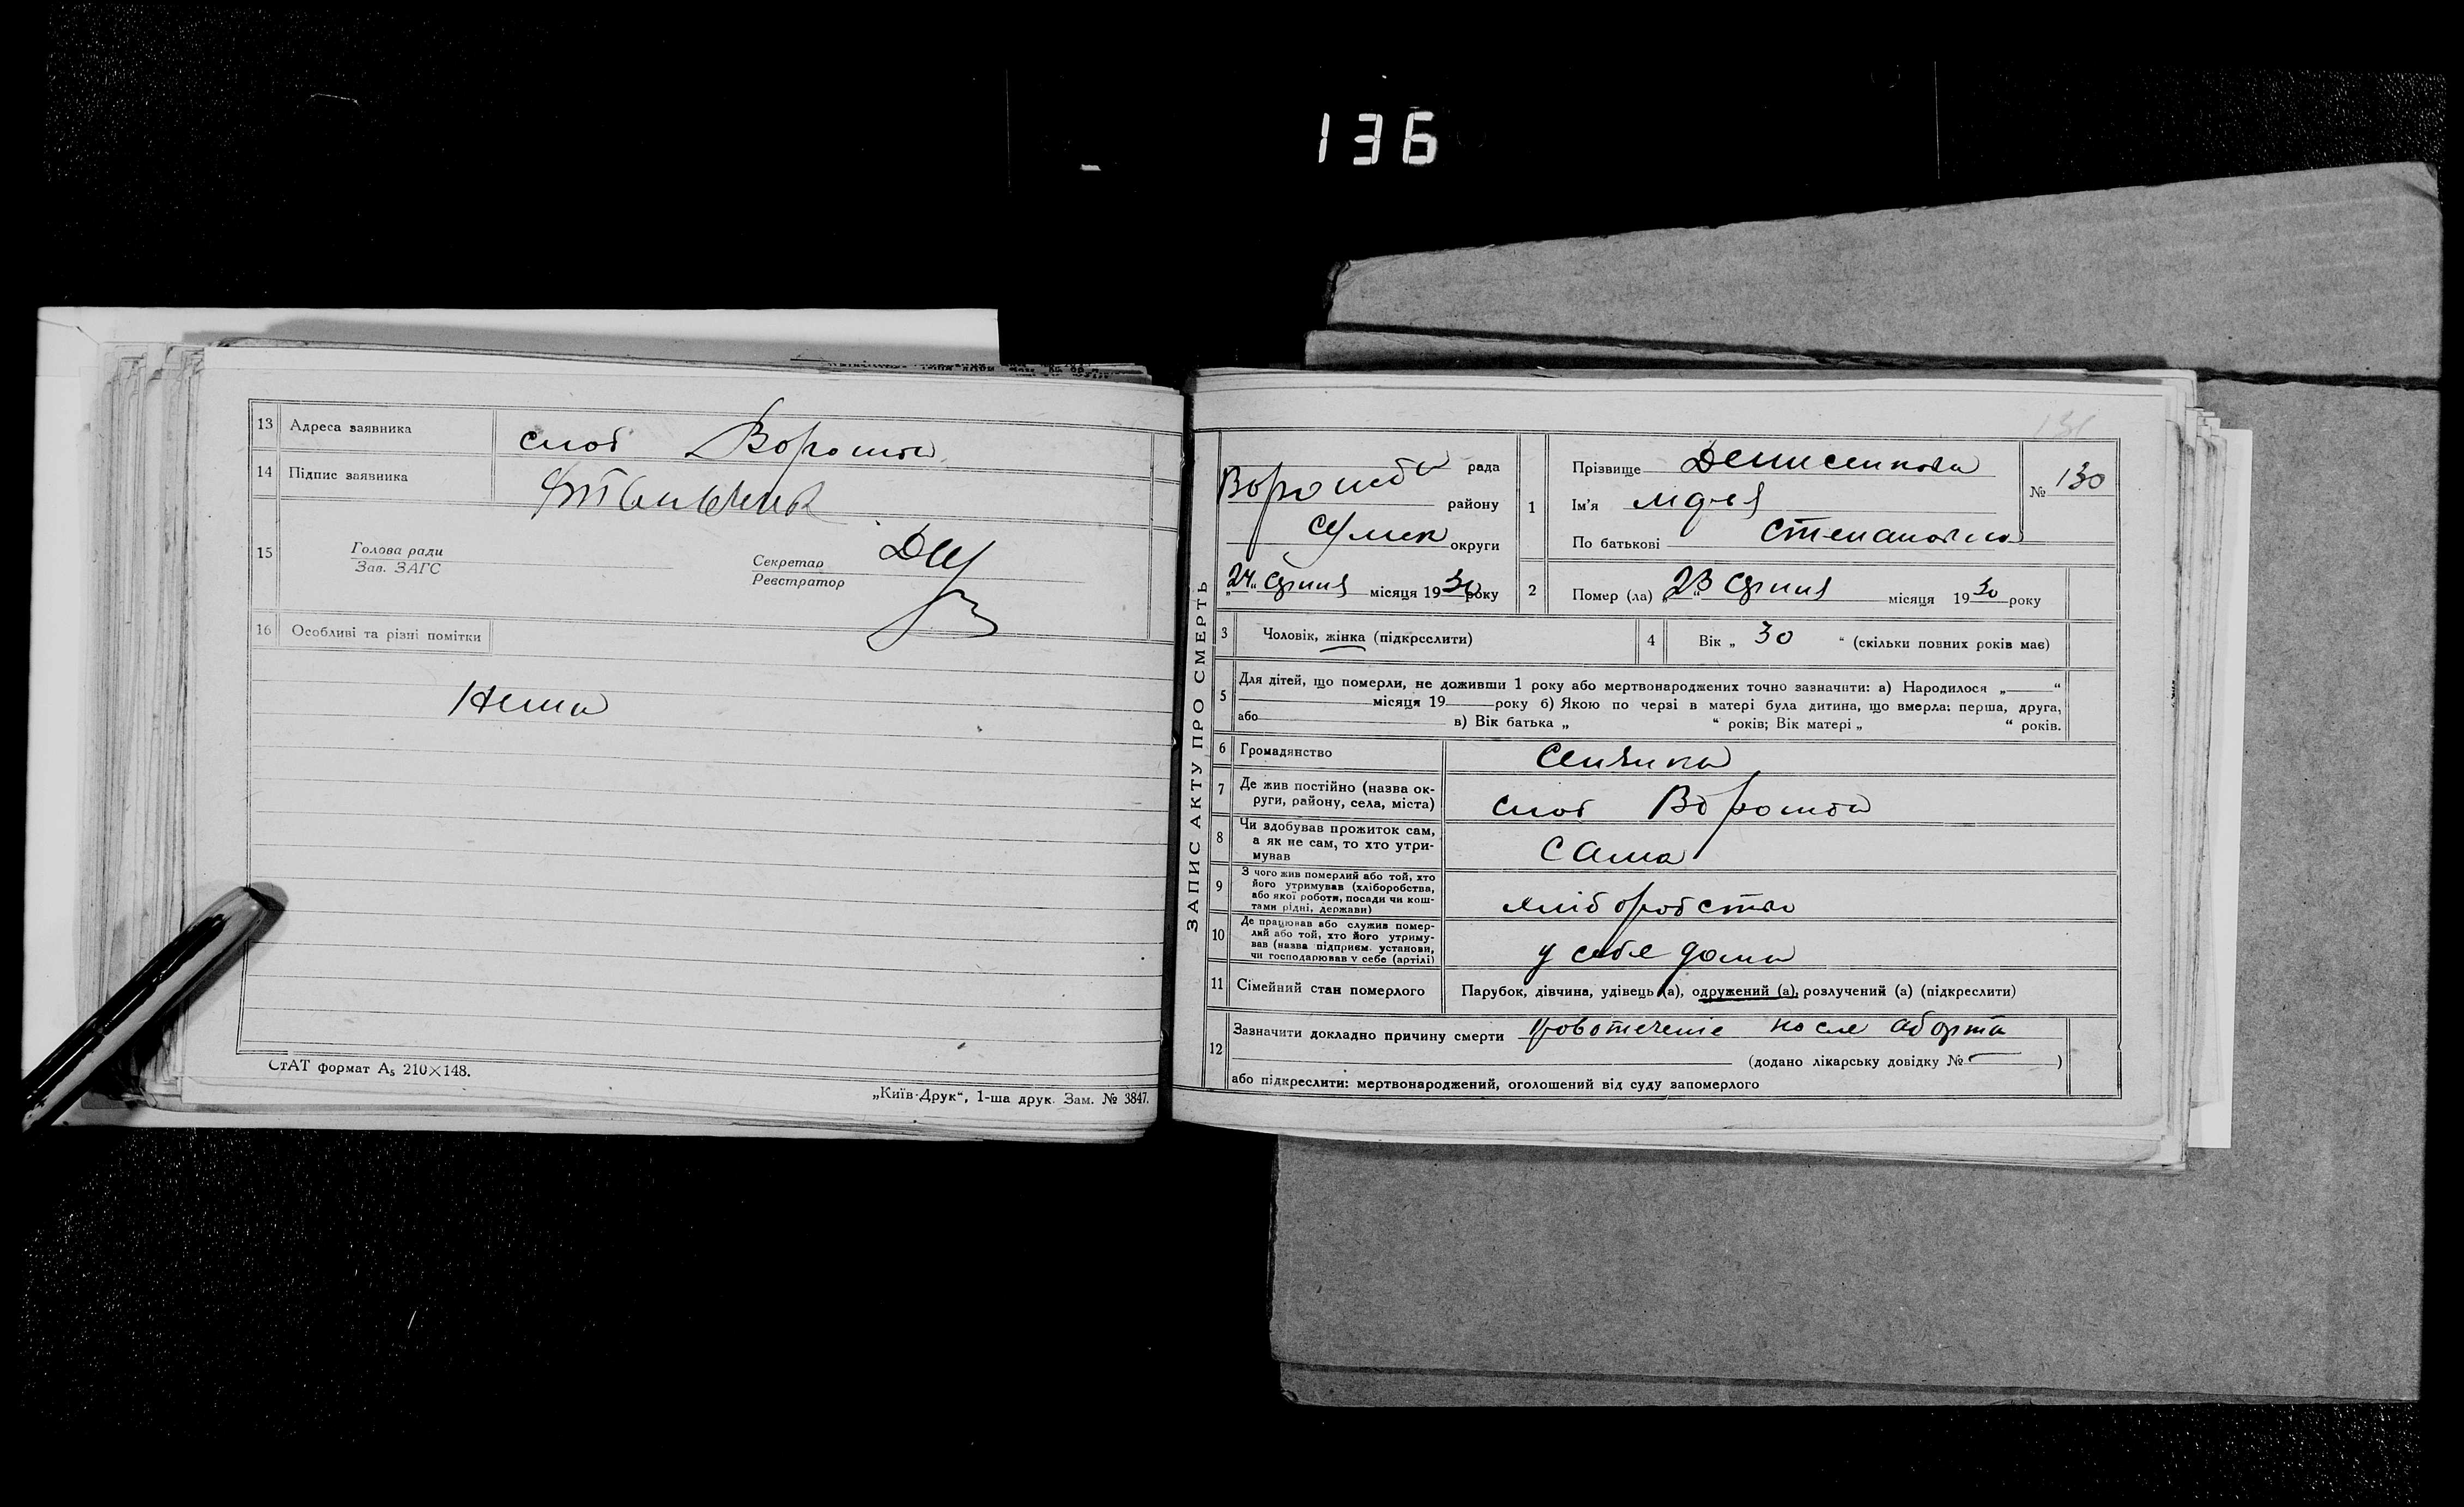 136
13 Адреса заявника слоб Ворожба
14 Підпис заявника
15 Голова ради
Зав. ЗАГС
Секретар
Реєстратор
16 Особливі та різні помітки
Нема
СтАТ формат А₅ 210×148.
„Київ-Друк“, 1-ша друк. Зам. № 3847.
131
ЗАПИС АКТУ ПРО СМЕРТЬ
Ворожба рада
району
Сумск округи
„24“ Серпня місяця 1930 року
1 Прізвище Денисенкова
Ім'я
По батькові Степановна
№ 130
2 Помер (ла) „23“ Серпня місяця 1930 року
3 Чоловік, жінка (підкреслити)
4 Вік „ 30 “ (скільки повних років має)
5 Для дітей, що померли, не доживши 1 року або мертвонароджених точно зазначити: а) Народилося „ “
місяця 19 року б) Якою по черзі в матері була дитина, що вмерла: перша, друга,
або в) Вік батька „ “ років; Вік матері „ “ років.
6 Громадянство Селянка
7 Де жив постійно (назва округи, району, села, міста) слоб Ворожба
8 Чи здобував прожиток сам, а як не сам, то хто утримував Сама
9 З чого жив померлий або той, хто його утримував (хліборобства, або якої роботи, посади чи коштами рідні, держави) хліборобства
10 Де працював або служив померлий або той, хто його утримував (назва підприєм. установи, чи господарював у себе (артілі) у себе дома
11 Сімейний стан померлого Парубок, дівчина, удівець (а), одружений (а), розлучений (а) (підкреслити)
12 Зазначити докладно причину смерти кровотеченіе после аборта
(додано лікарську довідку № — )
або підкреслити: мертвонароджений, оголошений від суду запомерлого